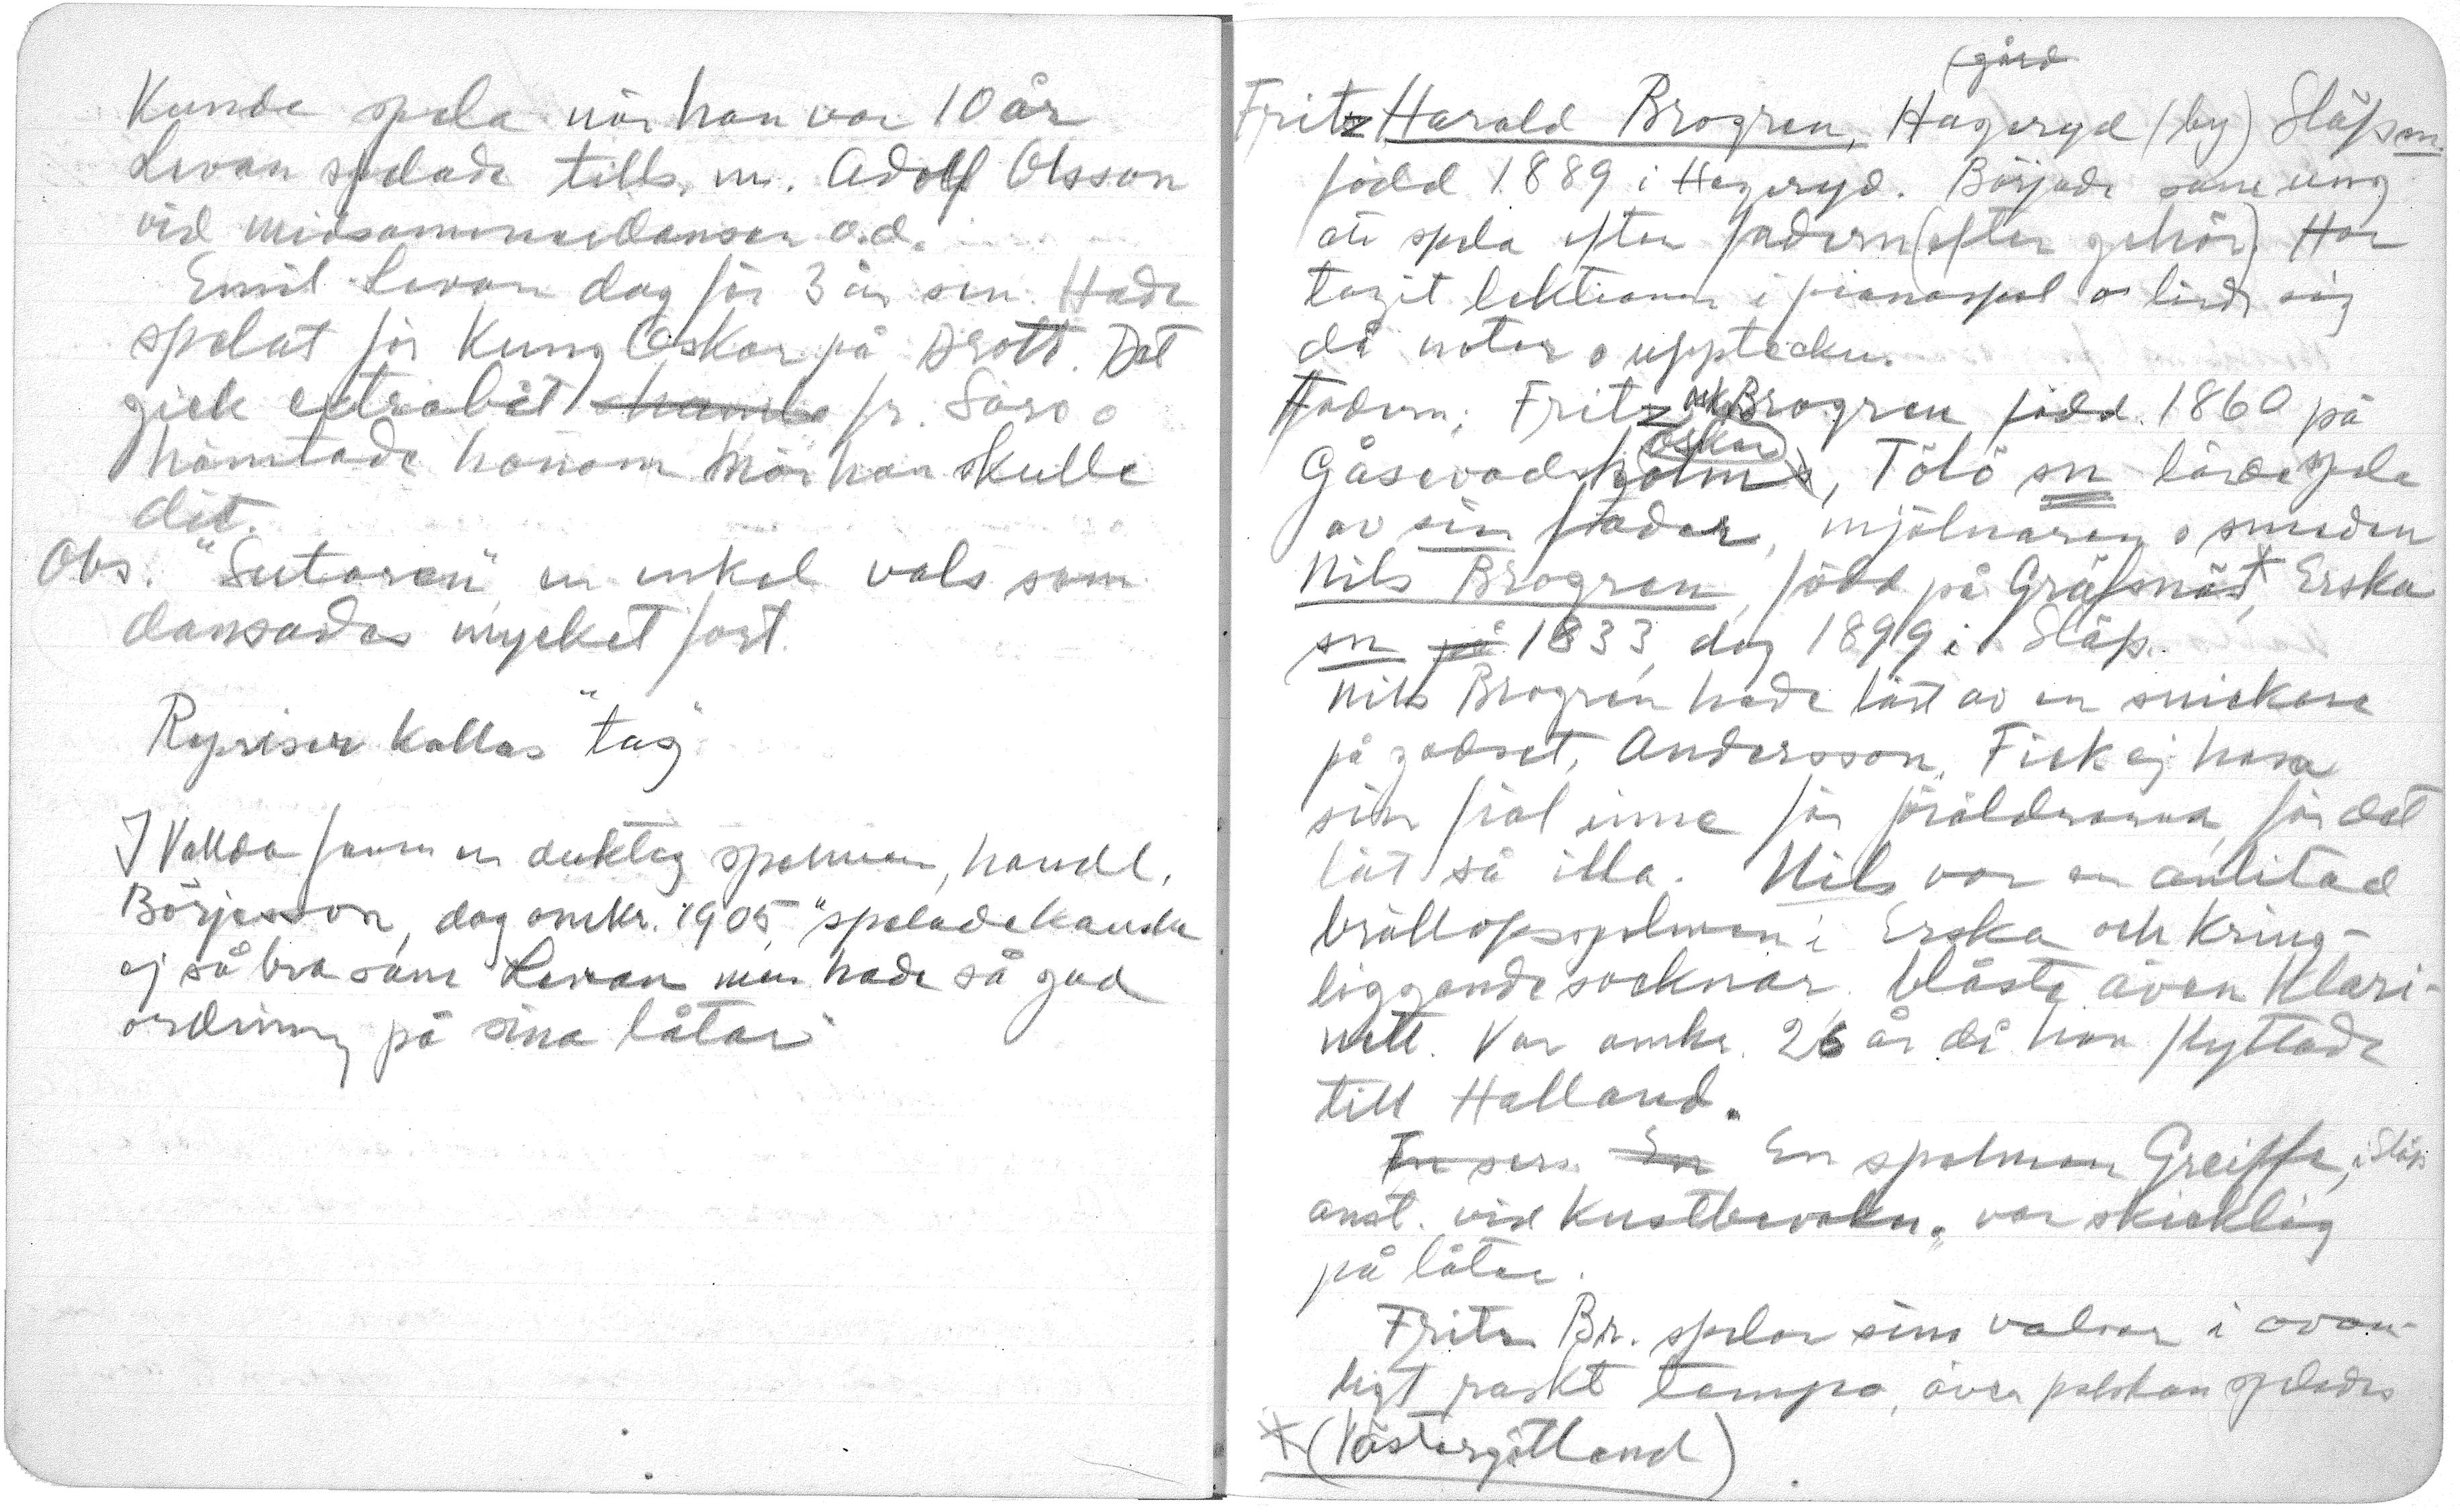 Kunde spela när han var 10 år
Levan spelade tills. m. Adolf Olsson
vid midsommardansen o.d.
Emil Levan dog för 3 år sen. Hade
spelat för Kung Oskar på Drott. Det
gick extrabåt fr. Särö o
hämtade honom när han skulle
dit.
Obs. "Sutaren" en enkel vals som
dansades mycket fort.
Repriser kallas "tag"
I Vallda fanns en duktig spelman, handl.
Börjesson, dog omkr. 1905, "spelade kanske
ej så bra som Levan men hade så god
ordning på sina låtar"
(gård
Fritz Harald Brogren, Hageryd (by) Släp sn.
född 1889 i Hageryd. Började som ung
att spela efter fadern (efter gehör). Har
tagit lektioner i pianospel o lärde sig
då noter o uppteckn.
Fadern: Fritz Brogren född 1860 på
Oskar
Gåsevadholm, Tölö sn lärde spela
av sin fader, mjölnaren o smeden
Nils Brogren, född på Gräfsnäs*, Erska
sn på 1833, dog 1899 i Släp.
Nils Brogren hade lärt av en snickare
på godset, Andersson. Fick ej hava
sin fiol inne för föräldrarna för det
lät så illa. Nils var en anlitad
bröllopsspelman i Erska och kring-
liggande socknar, blåste även klari-
nett. Var omkr. 26 år då han flyttade
till Halland.
En spelman Greiffe, i Släp
anst. vid Kustbevakn. var skicklig
på låtar.
Fritz Br. spelar sina valser i ovan-
ligt raskt tempo, även polskan spelades
* (Västergötland)